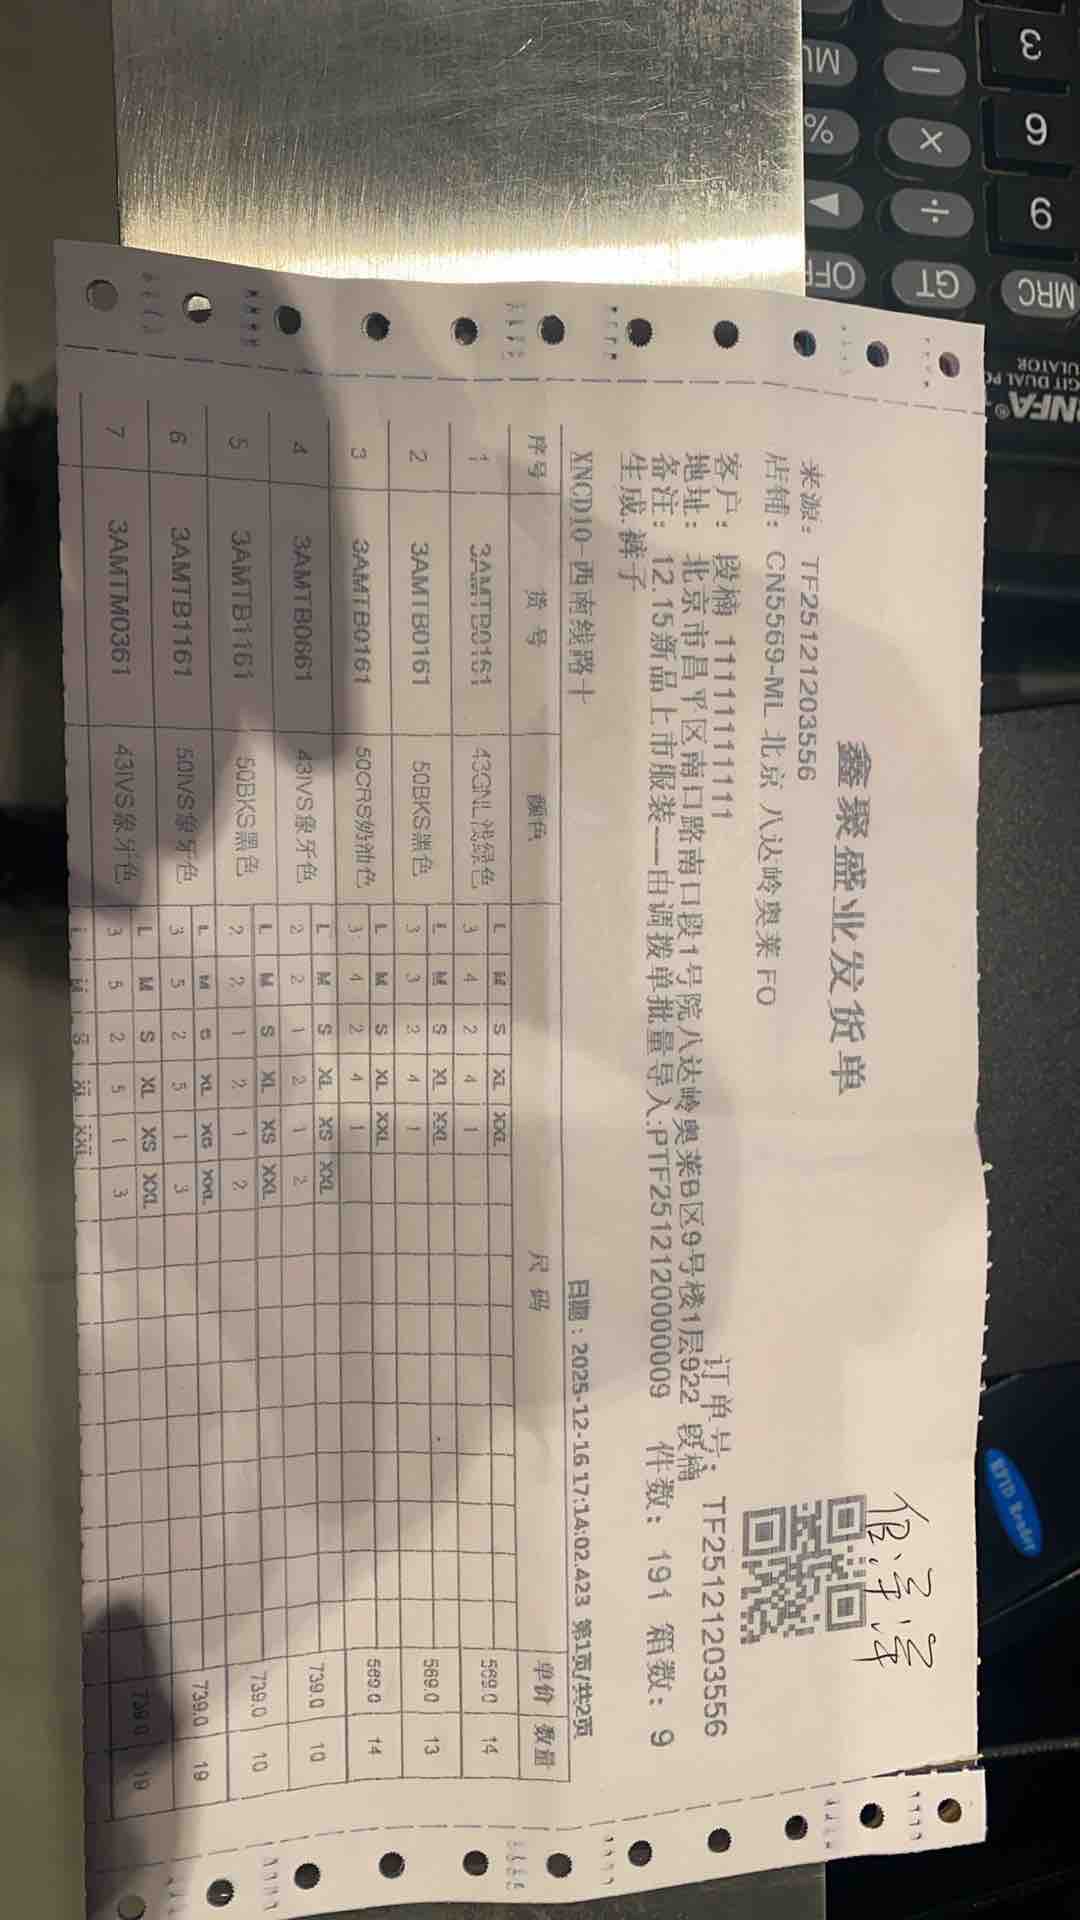 鑫聚盛业发货单
来源：TF251212203556
店铺：CN5569-ML 北京 八达岭奥莱 FO
订单号：TF251212203556
客户：段楠 11111111111
地址：北京市昌平区南口路南口段1号院八达岭奥莱B区9号楼1层922 段楠
备注：12.15新品上市服装---由调拨单批量导入:PTF251212000009 件数：191 箱数：9
生成.裤子
XNCD10-西南线路十 日期：2025-12-16 17:14:02.423 第1页/共2页
序号 货号 颜色 尺码 单价 数量
L M S XL XXL
1 3AMTB0161 43GNL浅绿色 3 4 2 4 1 569.0 14
L M S XL XXL
2 3AMTB0161 50BKS黑色 3 3 2 4 1 569.0 13
L M S XL XXL
3 3AMTB0161 50CRS奶油色 3 4 2 4 1 569.0 14
L M S XL XS XXL
4 3AMTB0661 43IVS象牙色 2 2 1 2 1 2 739.0 10
L M S XL XS XXL
5 3AMTB1161 50BKS黑色 2 2 1 2 1 2 739.0 10
L M S XL XS XXL
6 3AMTB1161 50IVS象牙色 3 5 2 5 1 3 739.0 19
L M S XL XS XXL
7 3AMTM0361 43IVS象牙色 3 5 2 5 1 3 739.0 19
L M S XL XXL
RFID Reader
MU − 3
% × 6
÷ 9
OFF GT MRC